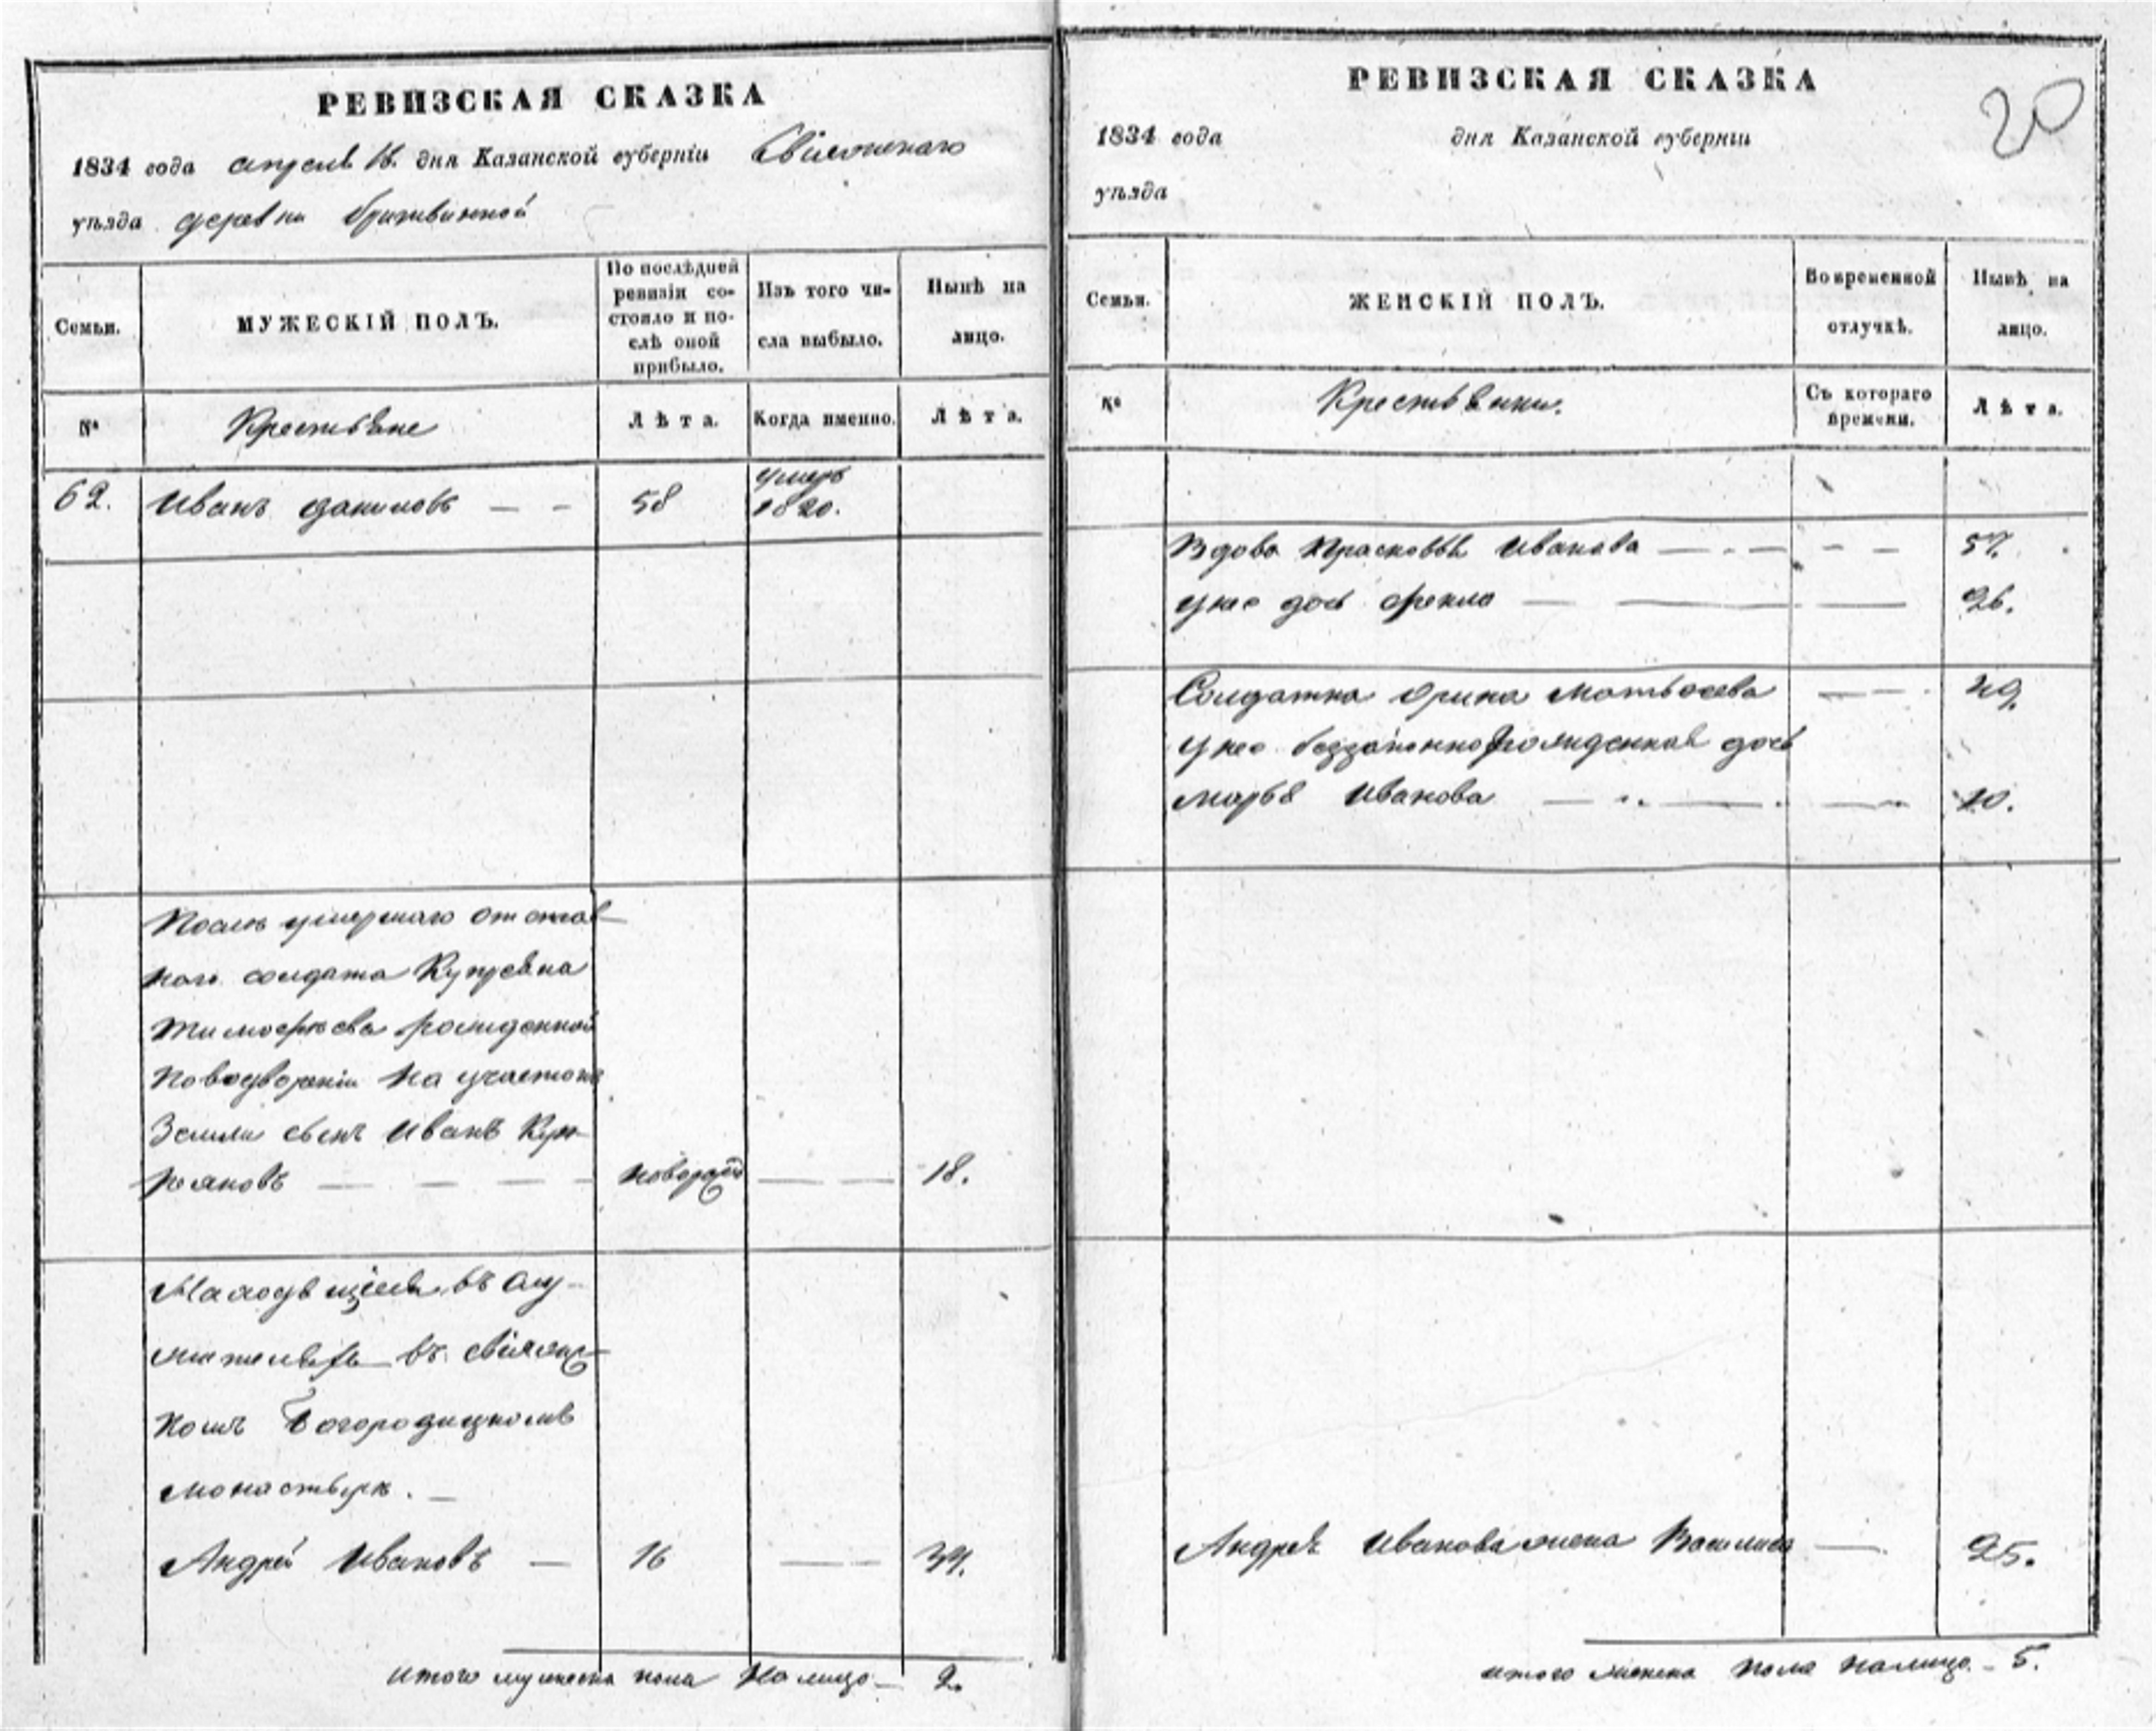 РЕВИЗСКАЯ СКАЗКА
1834 года апреля 16. дня Казанской губерніи Свіяжскаго
уѣзда деревни
Семьи.
МУЖЕСКІЙ ПОЛЪ.
По послѣдней ревизіи со-
стояло и по-
слѣ оной
прибыло.
Изъ того чи-
сла выбыло.
Нынѣ на
лицо.
№
Крестьяне
Лѣта.
Когда именно.
Лѣта.
62. Иванъ Даниловъ — — 58 умеръ
1820.
Послѣ умершаго отстав-
наго солдата Купреяна
Тимофѣева рожденной
Поводвореніи на участокъ
Земли сынъ Иванъ Куп-
реяновъ — — — — новорожд — — 18.
Находящіеся въ слу-
жителяхъ въ свіяжс-
комъ Богородицкомъ
монастырѣ. —
Андрей Ивановъ — 16 — — 34.
итого мужеска пола На лицо — 2.
РЕВИЗСКАЯ СКАЗКА
20
1834 года дня Казанской губерніи
уѣзда
Семьи.
ЖЕНСКІЙ ПОЛЪ.
Во временной
отлучкѣ.
Нынѣ на
лицо.
№
Крестьянки.
Съ котораго
времени.
Лѣта.
Вдова Прасковья Иванова — - — - — 57.
У нее дочь Фекла — — — 26.
Солдатка Орина Матвѣева — — 49.
У нее беззаконнорожденная дочь
Марья Иванова — — — 10.
Андрея Иванова жена Василиса — 25.
итого женска пола налицо — 5.